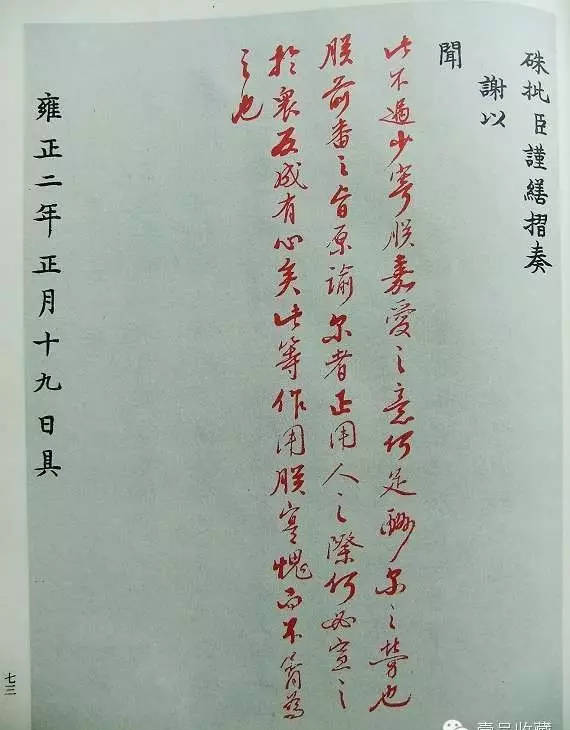 硃批臣謹繕摺奏
謝以
聞
此不過少寄朕嘉愛之意何足酬尔之勞也
朕前番之旨原諭尔者正用人之際何必宣之
於衆反成有心矣此等作用朕寔愧而不肯為
之也
雍正二年正月十九日具
七三
壹品收藏